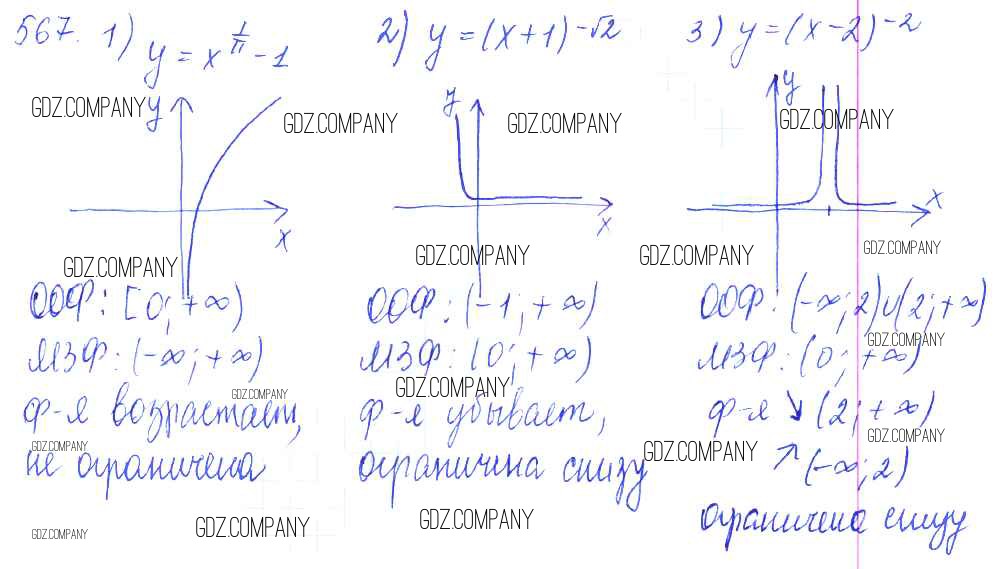 567. 1) y = x^{1/π} - 1
GDZ.COMPANY
y
GDZ.COMPANY
x
GDZ.COMPANY
ООФ: [0; +∞)
МЗФ: (-∞; +∞)
GDZ.COMPANY
ф-я возрастает,
GDZ.COMPANY
не ограничена
GDZ.COMPANY
GDZ.COMPANY
2) y = (x+1)^{-√2}
y
GDZ.COMPANY
x
GDZ.COMPANY
ООФ: (-1; +∞)
МЗФ: (0; +∞)
GDZ.COMPANY
ф-я убывает,
ограничина снизу
GDZ.COMPANY
3) y = (x-2)^{-2}
y
GDZ.COMPANY
x
GDZ.COMPANY
GDZ.COMPANY
ООФ: (-∞; 2)∪(2; +∞)
GDZ.COMPANY
МЗФ: (0; +∞)
ф-я ↘ (2; +∞)
GDZ.COMPANY
GDZ.COMPANY
↗ (-∞; 2)
ограничена снизу